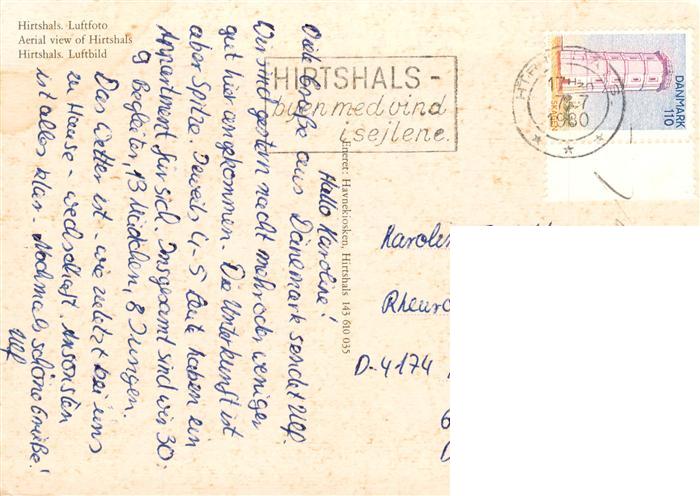 Hirtshals. Luftfoto
Aerial view of Hirtshals
Hirtshals. Luftbild
HIRTSHALS -
byen med vind
i sejlene.
HIRTSHALS
17
7
1980
DANMARK
110
SKAGEN
Eneret: Havnekiosken, Hirtshals 143 610 035
Hallo Karoline!
Viele Grüße aus Dänemark sendet Ulf.
Wir sind gestern nacht mehr oder weniger
gut hier angekommen. Die Unterkunft ist
aber Spitze. Jeweils 4-5 Leute haben ein
Appartment für sich. Insgesamt sind wir 30.
9 Begleiter, 13 Mädchen, 8 Jungen.
Das Wetter ist - wie zuletzt bei uns
zu Hause - wechselhaft. Ansonsten
ist alles klar. Nochmals schöne Grüße!
Ulf
Karolin
Rheur
D-4174
6
D